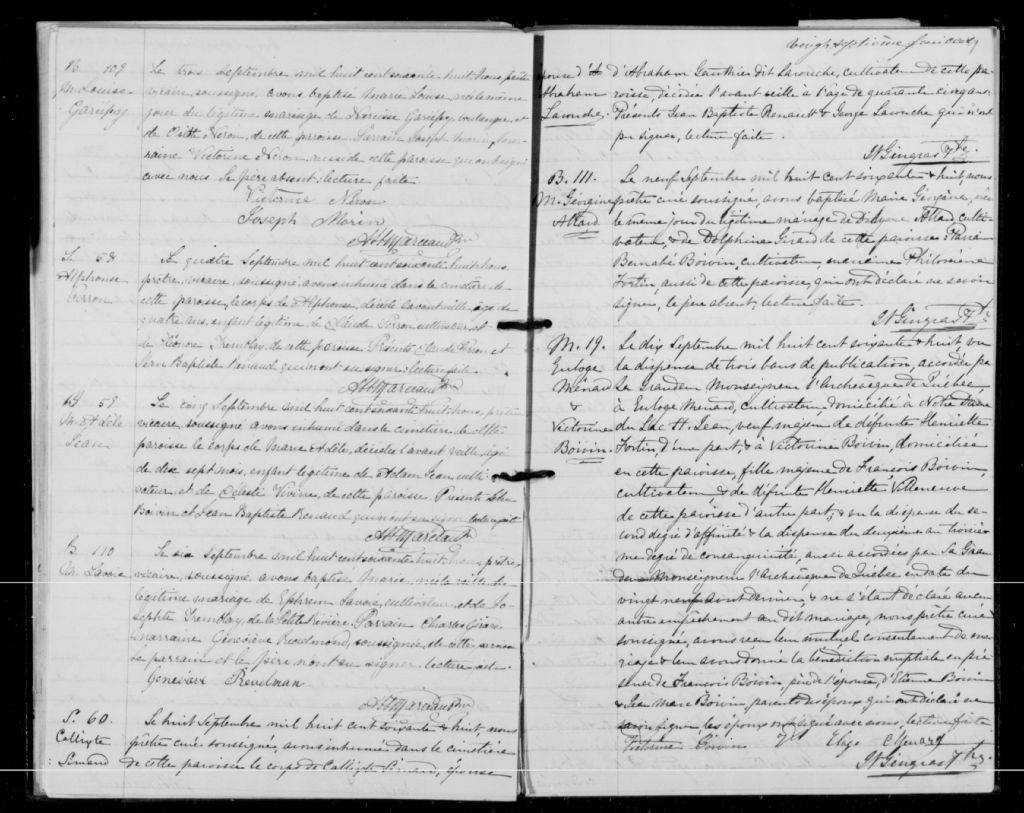 B 109
M. Louise
Gariépy
Le trois Septembre mil huit cent soixante huit, Nous, prêtre
vicaire, soussigné, avons baptisé Marie Louise, née le même
jour du légitime mariage de Narcisse Gariépy, boulanger, et
de Néron, de cette paroisse. Parrain Joseph Morin, mar-
raine Victorine Néron, aussi de cette paroisse qui ont signé
avec nous. Le père absent: lecture faite
Victorine Néron
Joseph Morin
Ptre
S. 58
Alphonse
Perron
Le quatre Septembre mil huit cent soixante huit, Nous,
prêtre, vicaire, soussigné, avons inhumé dans le cimetière de
cette paroisse, le corps de Alphonse, décédé l'avant veille, âgé de
quatre ans, enfant légitime de Claude Perron cultivateur, et
de Tremblay, de cette paroisse Présents Claude Perron et
Jean Baptiste Renaud qui n'ont su signer: lecture faite
Ptre
S 59
M. Adèle
Jean
Le cinq Septembre mil huit cent soixante huit, Nous, prêtre
vicaire, soussigné avons inhumé dans le cimetière de cette
paroisse le corps de Marie Adèle, décédée l'avant veille, âgée
de dix sept mois, enfant légitime de Adam Jean, culti-
vateur, et de Céleste de cette paroisse. Présents
Boivin et Jean Baptiste Renaud qui n'ont su signer lecture faite
Ptre
B. 110
M. Savoie
Le six Septembre mil huit cent soixante huit, Nous, prêtre,
vicaire, soussigné avons baptisé Marie, née la veille du
légitime mariage de Ephrem Savoie, cultivateur, et de Jo-
sephte Tremblay, de la Petite Rivière. Parrain Charles
marraine Geneviève soussignée, de cette paroisse
le parrain et le père n'ont su signer: lecture faite
Geneviève
Ptre
S. 60.
Calixte
Simard
Le huit Septembre mil huit cent soixante & huit, nous
prêtre curé soussigné, avons inhumé dans le cimetière
de cette paroisse le corps de Calixte Simard, épouse
vingt septième
Abraham
Lavoche.
d'Abraham Gauthier dit Larouche, cultivateur de cette pa-
roisse, décédée l'avant veille à l'âge de quarante cinq ans.
Présents Jean Baptiste Renault & George Larouche qui n'ont
pu signer, lecture faite.
Gingras Ptre
B. 111.
M. Géorgine
Allard
Le neuf Septembre mil huit cent soixante & huit, nous
prêtre curé soussigné, avons baptisé Marie Géorgine, née
le même jour du légitime mariage de Allard, culti-
vateur, & de Delphine Girard de cette paroisse. Parrain
Bernabé Boivin, cultivateur, marraine Philomène
Fortin, aussi de cette paroisse, qui ont déclaré ne savoir
signer, le père absent, lecture faite.
Gingras Ptre
M. 19.
Euloge
Ménard
&
Victorine
Boivin.
Le dix Septembre mil huit cent soixante & huit, vu
la dispense de trois bans de publication, accordée par
Sa Grandeur Monseigneur l'Archevêque de Québec
à Euloge Menard, cultivateur domicilié à Notre Dame
du Lac St. Jean, veuf majeur de défunte Henriette
Fortin, d'une part, & à Victorine Boivin, domiciliée
en cette paroisse, fille majeure de François Boivin,
cultivateur, & de défunte Henriette Villeneuve
de cette paroisse d'autre part; & vu la dispense du se-
cond degré d'affinité & la dispense du deuxième au troisiè-
me degré de consanguinité, aussi accordées par Sa Gran-
deur Monseigneur l'Archevêque de Québec en date du
vingt neuf Aout dernier, & ne s'étant déclaré aucun
autre empêchement au dit mariage, nous prêtre curé
soussigné, avons reçu leur mutuel consentement de ma-
riage & leur avons donné la bénédiction nuptiale en pré-
sence de François Boivin, père de l'épouse, d'Etienne Boivin
& Jean Marc Boivin parents des époux qui ont déclaré ne
savoir signer, les époux ont signé avec nous, lecture faite
Victorine Boivin Menard
Gingras Ptre